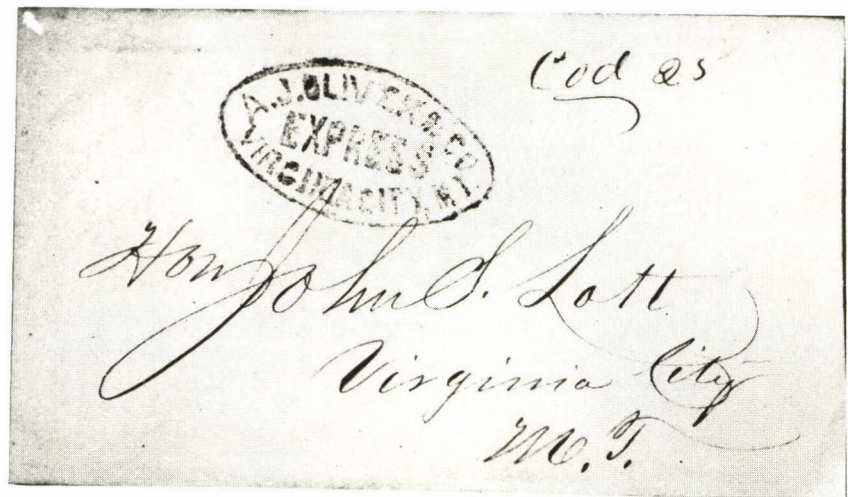 Cod 25
A.J. OLIVER & CO.
EXPRESS
VIRGINIA CITY, M.T.
Hon John S. Lott
Virginia City
M.T.